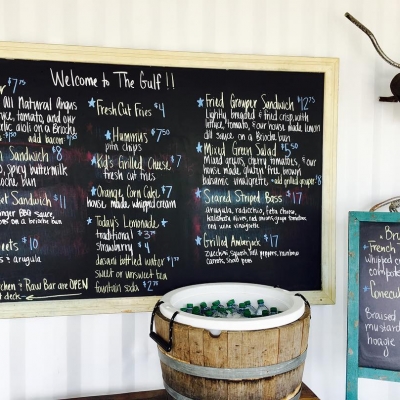 Welcome to The Gulf!!
$7.75
All Natural Angus
tuce, tomato, and our
aioli on a Brioche
add bacon
Sandwich $8
spicy buttermilk
oche bun
Sandwich $11
BBQ sauce,
on a brioche bun
$10
& arugula
& Raw Bar are OPEN
deck
Fresh Cut Fries $4
Hummus $7.50
pita chips
Kid's Grilled Cheese $7
fresh cut fries
Orange Corn Cake $7
house made whipped cream
Today's Lemonade
traditional $3
strawberry $4
dasani bottled water
sweet or unsweet tea
fountain soda $2
Fried Grouper Sandwich $12.75
Lightly breaded & fried crisp with
lettuce, tomato, & our house made lemon
dill sauce on a Brioche
Mixed Green Salad $5.50
Mixed greens, cherry tomatoes, & our
house made gluten free, brown
balsamic vinaigrette + add grilled grouper $8
Seared Striped Bass $17
arugula, radicchio, feta cheese
kalamata olives, red onions,
red wine vinaigrette
Grilled Amberjack $17
zucchini, squash, bell peppers, rainbow
carrots, snap peas
French T
whipped c
compote
Braised
mustard
hoagie